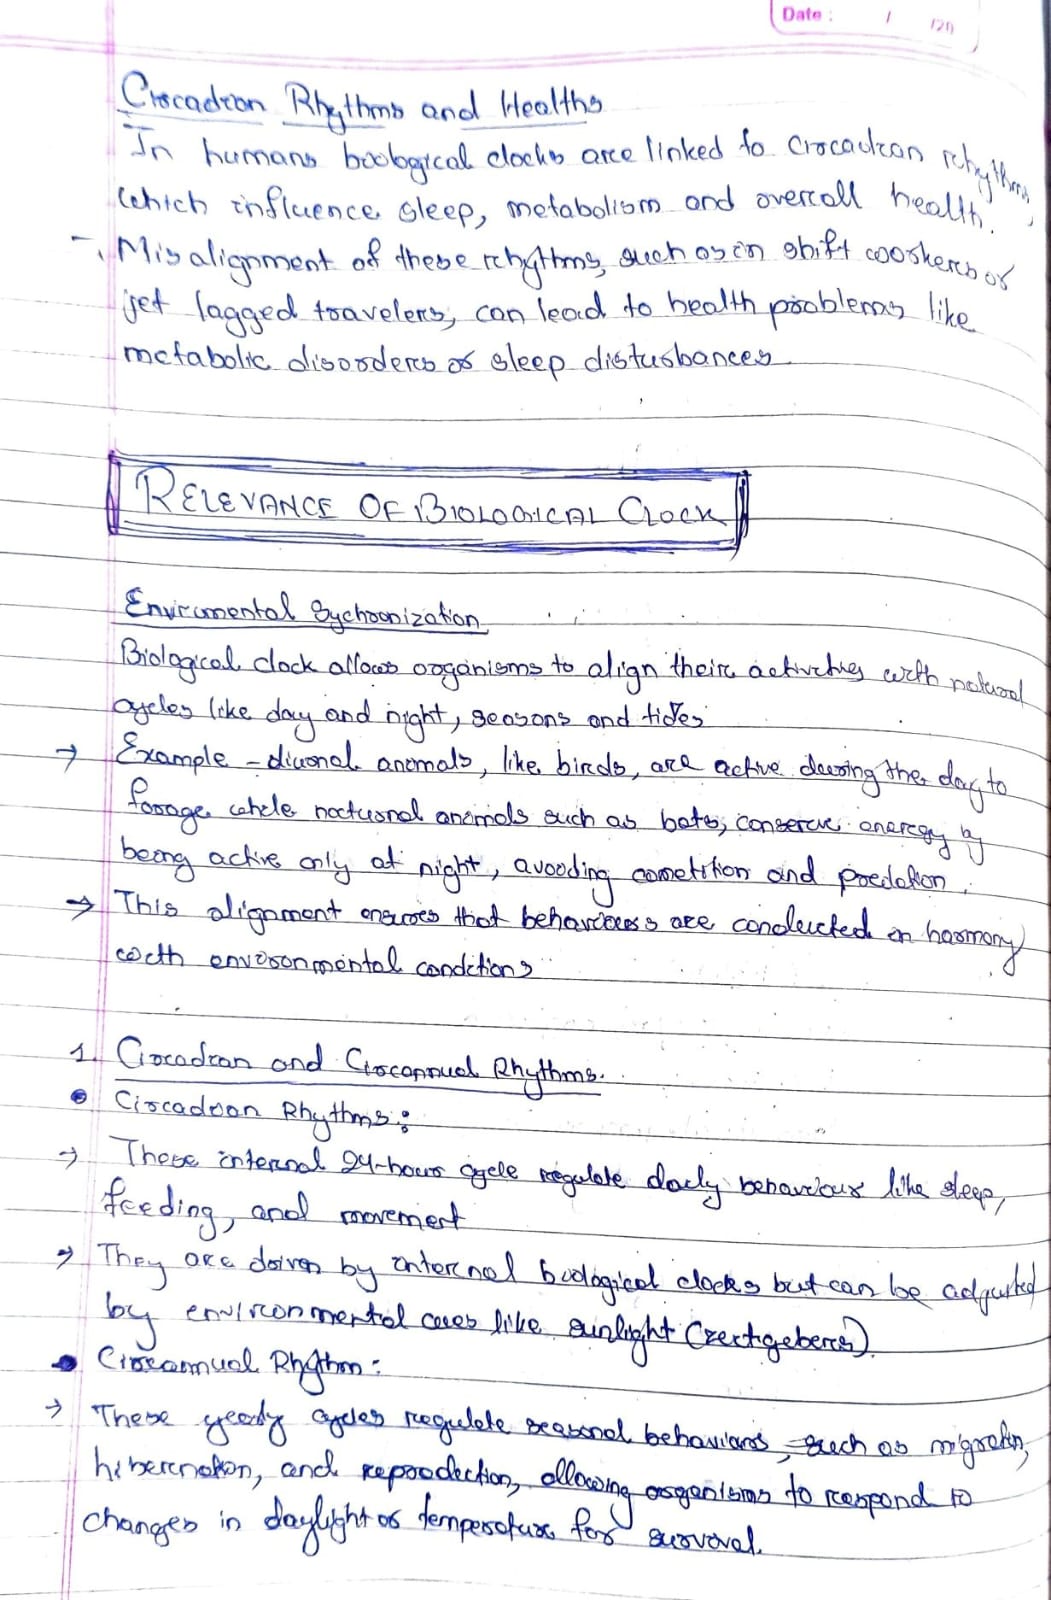 Date : / /20
Circadian Rhythms and Healths
In humans biological clocks are linked to circadian rhythms,
which influence sleep, metabolism and overall health.
- Misalignment of these rhythms, such as in shift workers or
jet lagged travelers, can lead to health problems like
metabolic disorders or sleep disturbances
RELEVANCE OF BIOLOGICAL CLOCK
Enviromental Sychronization
Biological clock allows organisms to align their activities with natural
cycles like day and night, seasons and tides
→ Example - diuonal animals, like birds, are active during the day to
forage while noctusnal animals such as bats, conserve energy by
being active only at night, avoiding cometition and predation.
→ This alignment ensures that behaviours are conducted in harmony
with environmental conditions
1. Circadian and Circannual Rhythms.
• Circadian Rhythms :
→ These internal 24-hours cycle regulate daily behaviour like sleep,
feeding, and movement
→ They are driven by internal biological clocks but can be adjusted
by environmental cues like sunlight (zeitgebers)
• Circannual Rhythm :
→ These yearly cycles regulate seasonal behaviours, such as migration,
hibernation, and reproduction, allowing organisms to respond to
changes in daylight or temperature for survival.